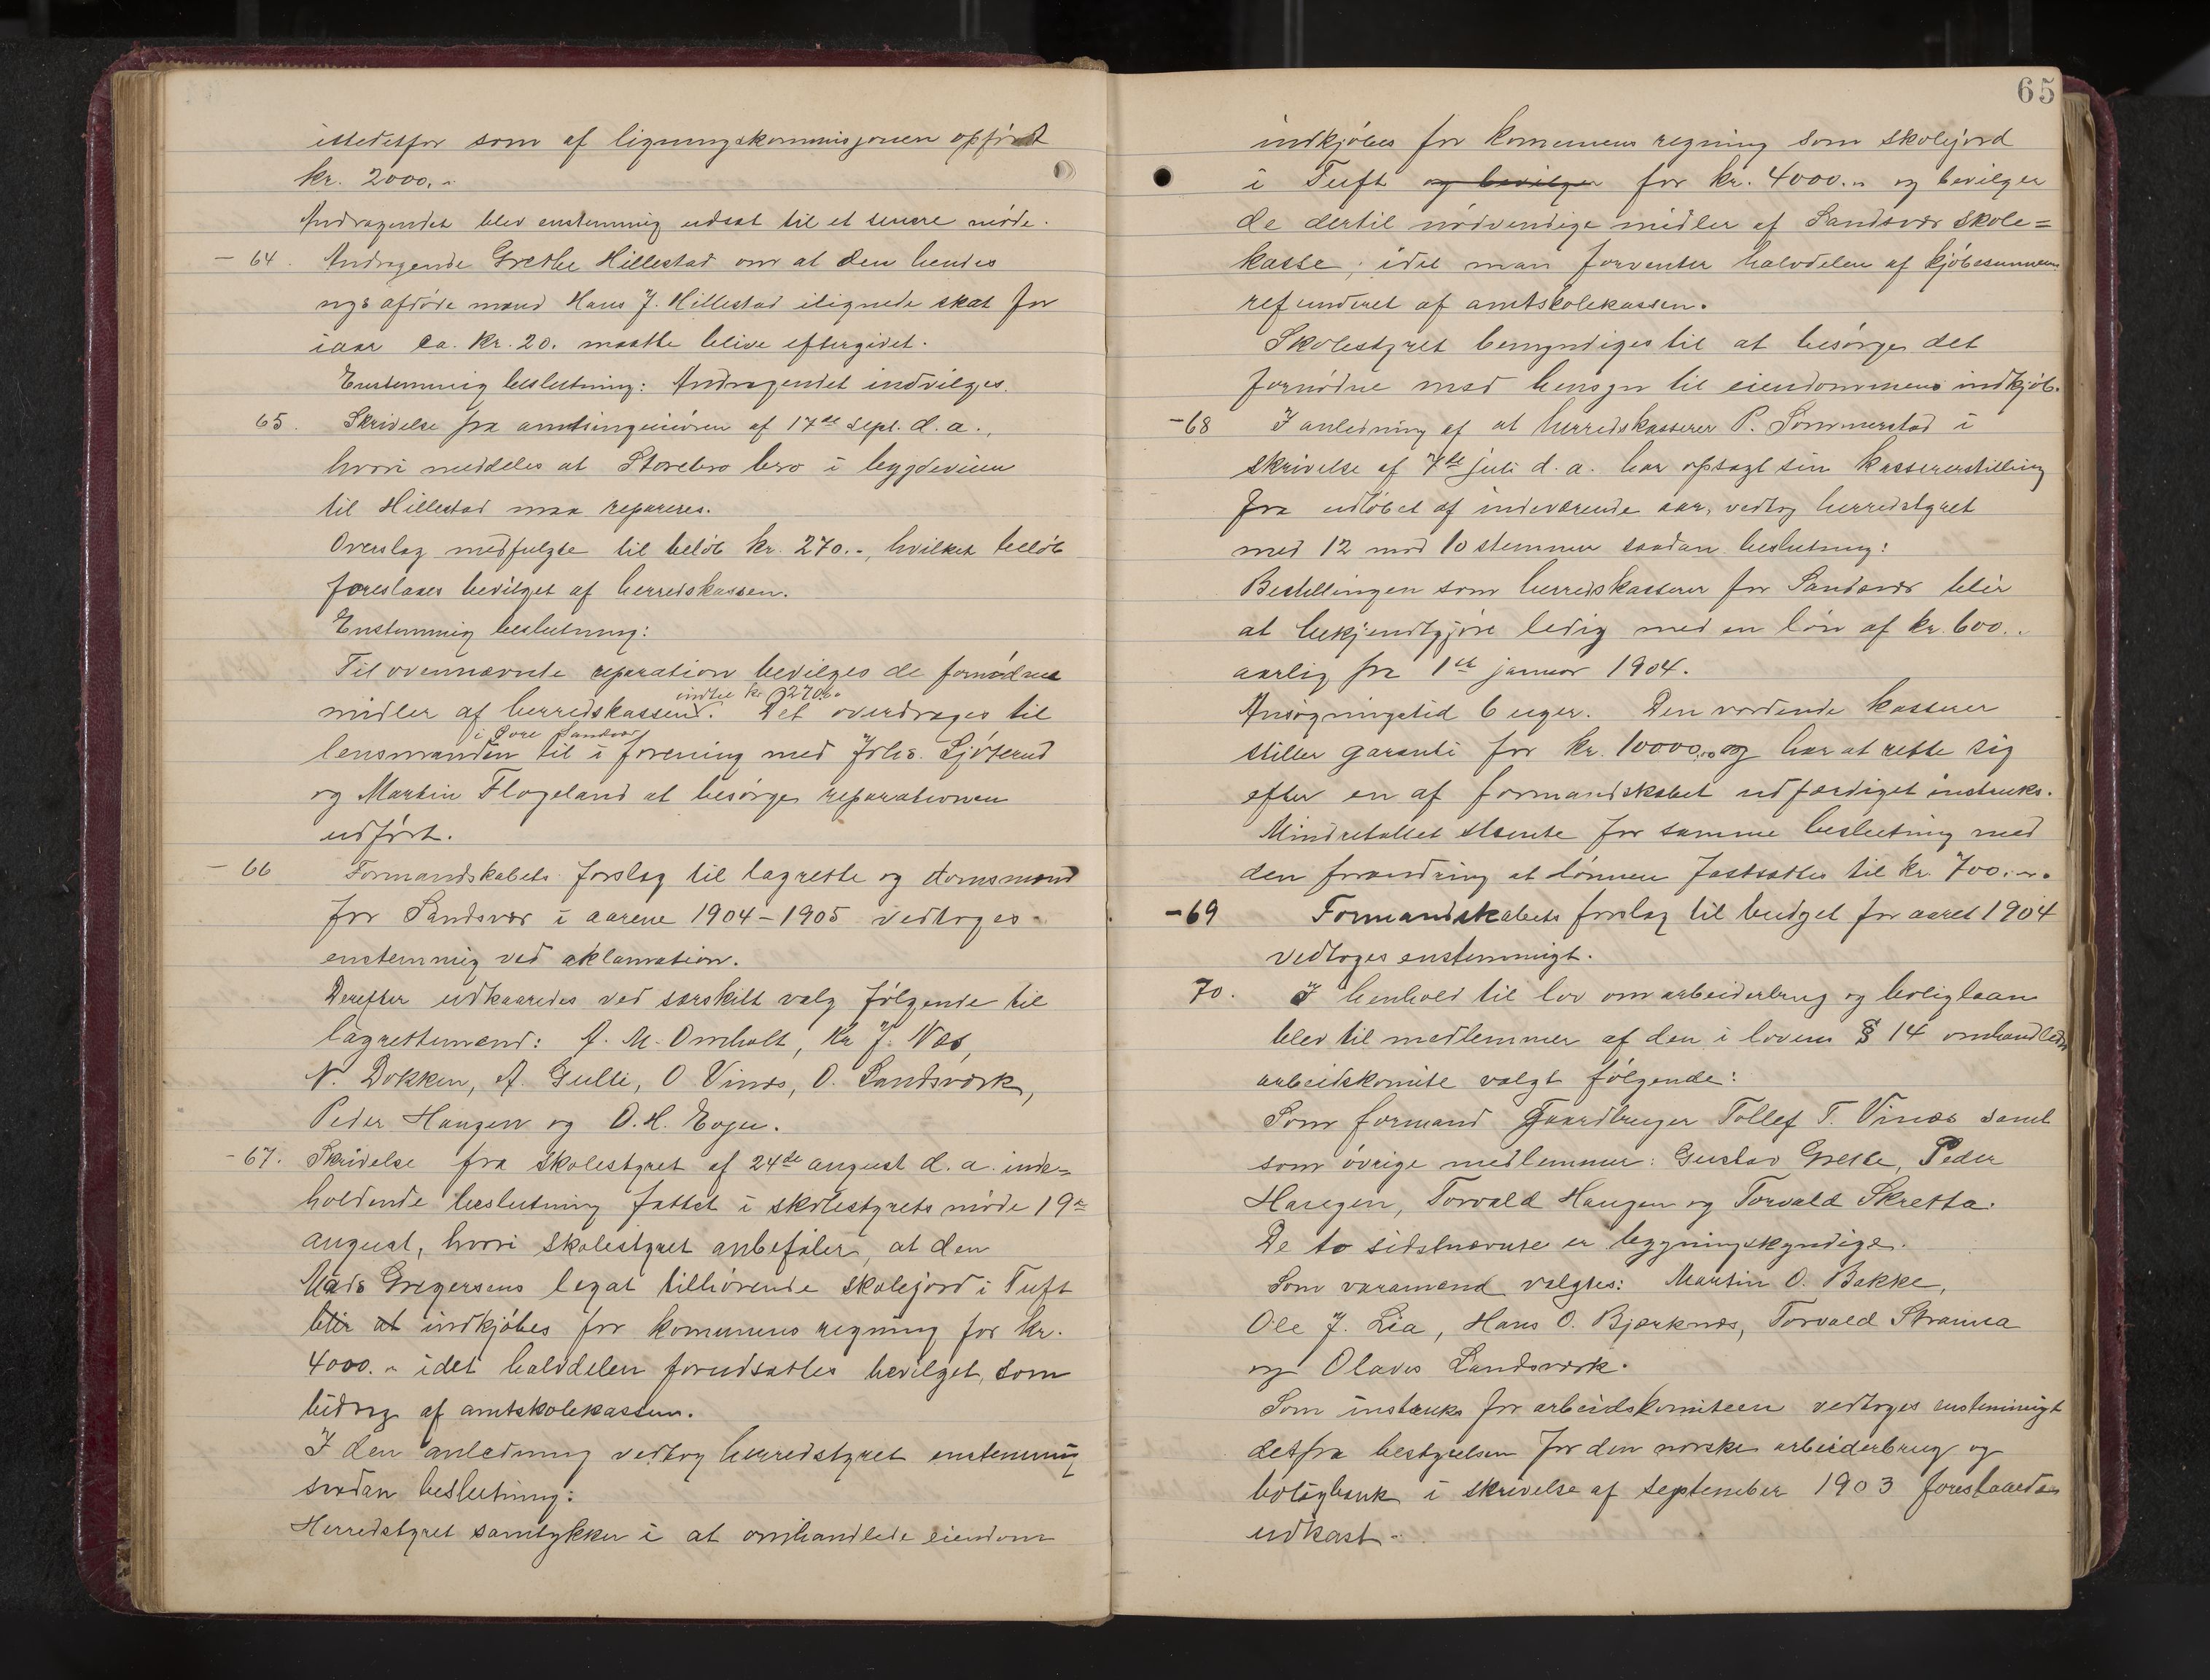 istedetfor som af ligningskommisjonen opført
kr. 2000.-
Andragendet blev enstemmig udsat til et senere møde.
- 64. Andragende Grethe Hillestad om at den hendes
nys afdøde mand Hans J. Hillestad ilignede skat for
iaar ca. kr. 20. maatte blive eftergivet.
Enstemmig beslutning: Andragendet indvilges.
65. Skrivelse fra amtsingeniøren af 17de sept. d. a.,
hvori meddeles at Storebro bro i bygdeveien
til Hillestad maa repareres.
Overslag medfulgte til beløb kr. 270.-, hvilket beløb
foreslaaes bevilget af herredskassen.
Enstemmig beslutning:
Til ovennævnte reparation bevilges de fornødne
indtil kr 270.-
midler af herredskassen. Det overdrages til
i Øvre Sandsvær
lensmanden til i forening med Johs. Sjøterud
og Martin Flogeland at besørge reparationen
udført.
- 66 Formandskabets forslag til lagrette og domsmænd
for Sandsvær i aarene 1904-1905 vedtoges
enstemmig ved aklamation.
Derefter udkaaredes ved særskilt valg følgende til
lagrettemænd: A. M. Omholt, Kr J. Næs,
N. Dokken, A. Gulli, O Vinæs, O. Sandsværk,
Peder Haugen og O. H. Eger.
- 67. Skrivelse fra skolestyret af 24de august d. a. inde=
holdende beslutning fattet i skolestyrets møde 19de
august, hvori skolestyret anbefaler, at den
Mads Gregersens legat tilhørende skolejord i Tuft
blir at indkjøbes for komunens regning for kr.
4000.- idet halvdelen forudsættes bevilget som
bidrag af amtskolekassen.
I den anledning vedtog herredstyret enstemmig
saadan beslutning:
Herredstyret samtykker i at omhandlede eiendom
65
indkjøbes for komunens regning som skolejord
i Tuft og bevilger for kr. 4000.- og bevilger
de dertil nødvendige midler af Sandsvær skole=
kasse, idet man forventer halvdelen af kjøbesummen
refunderet af amtskolekassen.
Skolestyret bemyndiges til at besørge det
fornødne med hensyn til eiendommens indkjøb.
- 68 I anledning af at herredskasserer P. Sommerstad i
skrivelse af 7de juli d. a. har opsagt sin kassererstilling
fra udløbet af indeværende aar, vedtog herredstyret
med 12 mod 10 stemmer saadan beslutning:
Bestillingen som herredskasserer for Sandsvær blir
at bekjendtgjøre ledig med en løn af kr. 600.-
aarlig fra 1ste januar 1904.
Ansøgningstid 6 uger. Den vordende kasserer
stiller garanti for kr. 10000.- og har at rette sig
efter en af formandskabet udfærdiget instruks.
Mindretallet stemte for samme beslutning med
den forandring at lønnen fastsættes til kr. 700.-.
- 69 Formandskabets forslag til budget for aaret 1904
vedtoges enstemmigt.
70. I henhold til lov om arbeiderbrug og boliglaan
blev til medlemmer af den i lovens § 14 omhandlede
arbeidskomite valgt følgende:
Som formand Gaardbruger Tollef T. Vinæs samt
som øvrige medlemmer: Gustav Grette, Peder
Haugen, Torvald Haugen og Torvald Skretta.
De to sidstnævnte er bygningskyndige.
Som varamænd valgtes: Martin O. Bakke,
Ole J. Lia, Hans O. Bjerknæs, Torvald
og Olaves Sandsværk.
Som instruks for arbeidskomiteen vedtoges enstemmigt
det fra bestyrelsen for den norske arbeiderbrug og
boligbank i skrivelse af september 1903 foreslaaede
udkast.-